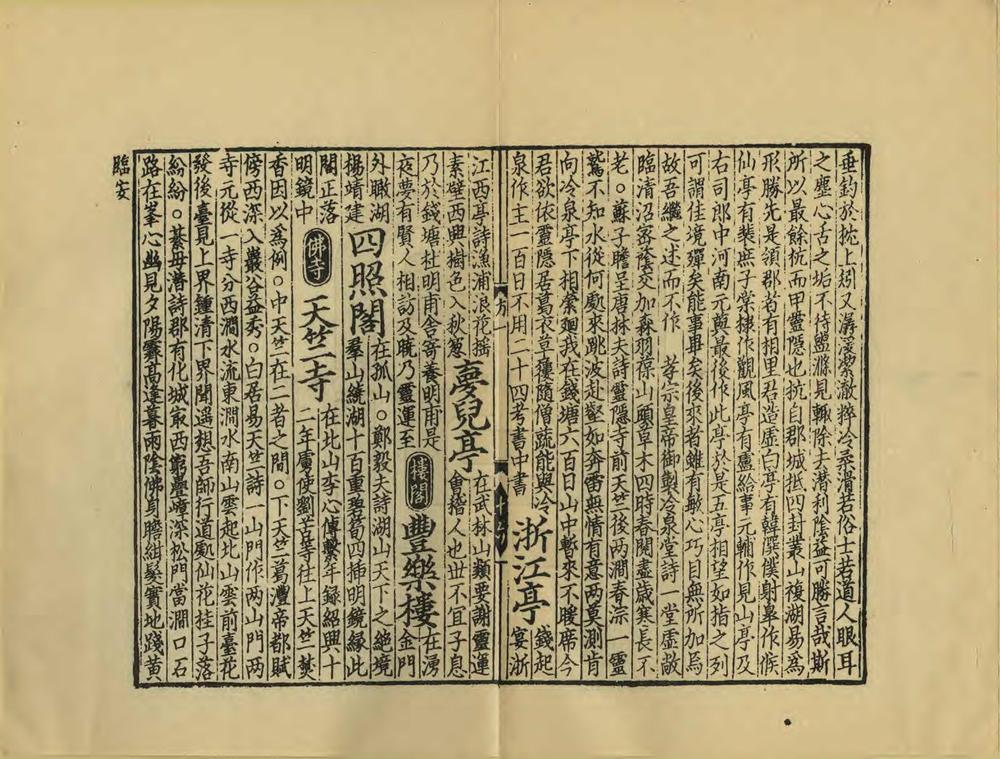 垂釣於枕上矧又潺湲潔澈粹冷柔滑若俗士若道人眼耳
之塵心舌之垢不待盥滌見輒除去潛利陰益可勝言哉斯
所以最餘杭而甲靈隱也杭自郡城抵四封叢山複湖易為
形勝先是領郡者有相里君造虛白亭有韓僕射皋作候
仙亭有裴庶子棠棣作觀風亭有盧給事元輔作見山亭及
右司郎中河南元藇最後作此亭於是五亭相望如指之列
可謂佳境殫矣能事畢矣後來者雖有敏心巧目無所加焉
故吾繼之述而不作 孝宗皇帝御製冷泉堂詩一堂虛敞
臨清沼密蔭交加森羽葆山頭草木四時春閱盡歲寒長不
老○蘇子瞻呈唐林夫詩靈隱寺前天竺後兩澗春淙一靈
鷲不知水從何處來跳波赴壑如奔雷無情有意兩莫測肯
向冷泉亭下相縈迴我在錢塘六百日山中暫來不暖席今
君欲依靈隱居葛衣草屨隨僧蔬能與冷
泉作主一百日不用二十四考書中書
浙江亭 錢起宴浙
江西亭詩漁浦浪花搖
素壁西興樹色入秋窗
夢兒亭 在武林山類要謝靈運會稽人也世不宜子息
乃於錢塘杜明甫舍寄養明甫是
夜夢有賢人相訪及曉乃靈運至
樓閣
豐樂樓 在湧金門
外瞰湖
楊靖建
四照閣 在孤山○鄭毅夫詩湖山天下之絕境羣山繞湖十百重碧筍四插明鏡緣此
閣正落
明鏡中
佛寺
天竺寺 在北山李心傳繫年錄紹興十二年虜使劉筈等往上天竺焚
香因以為例○中天竺在二者之間○下天竺葛澧帝都賦
傍西深入巖谷益秀○白居易天竺詩一山門作兩山門兩
寺元從一寺分西澗水流東澗水南山雲起北山雲前臺花
發後臺見上界鍾清下界聞遥想吾師行道處仙花桂子落
紛紛○綦毋潛詩郡有化城最西窮疊嶂深松門當澗口石
路在峯心幽見夕陽霽高逢暮雨陰佛身瞻紺髮寳地踐黄
臨安